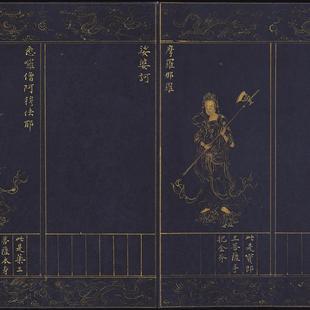 摩羅那羅
此是寶印
王菩薩手
把金斧
娑婆訶
悉囉僧阿穆佉耶
此是藥王
菩薩本身